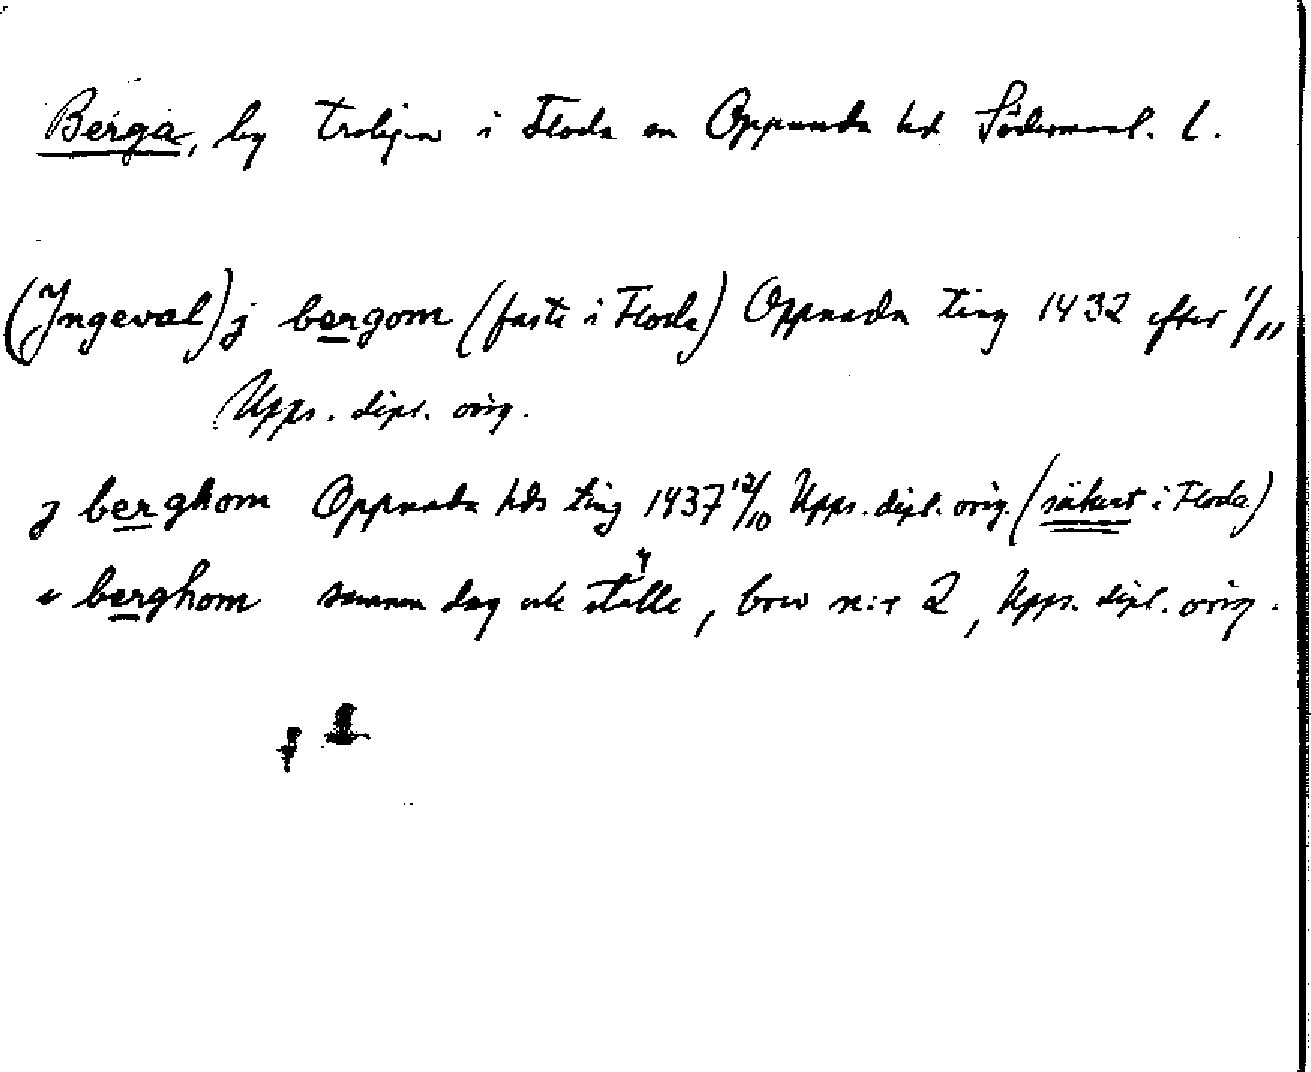 Berga, by troligen i Floda sn Oppunda hd Södermanl. l.
(Ingeval) j bergom (faste i Floda) Oppunda ting 1432 efter 1/11
Upps. dipl. orig.
j berghom Oppunda hds ting 1437 12/10 Upps. dipl. orig. (säkert i Floda)
i berghom samma dag och ställe, brev n:r 2, Upps. dipl. orig.